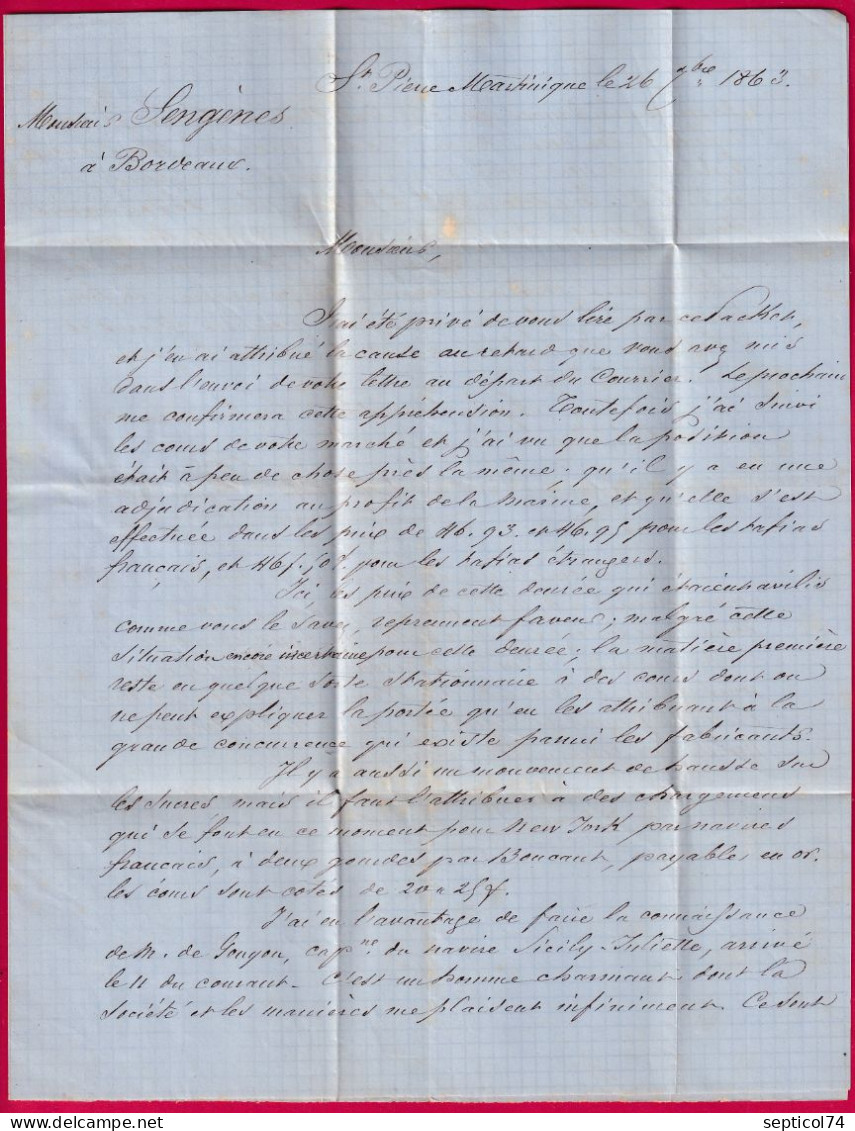 St. Pierre Martinique le 26 7bre 1863.
Monsieur Sengènes
à Bordeaux.
Monsieur,
J'ai été privé de vous lire par ce Packet,
et j'en ai attribué la cause au retard que vous avez mis
dans l'envoi de votre lettre au départ du Courrier. Le prochain
me confirmera cette appréhension. Toutefois j'ai suivi
les cours de votre marché et j'ai vu que la position
était à peu de chose près la même; qu'il y a eu une
adjudication au profit de la Marine, et qu'elle s'est
effectuée dans les prix de 46.93. et 46.95 pour les tafias
français, et 46f.50c. pour les tafias étrangers.
Ici les prix de cette denrée qui étaient avilis
comme vous le savez, reprennent faveur; malgré cette
situation encore incertaine pour cette denrée; la matière première
reste en quelque sorte stationnaire à des cours dont on
ne peut expliquer la portée qu'en les attribuant à la
grande concurrence qui existe parmi les fabricants.
Il y a aussi un mouvement de hausse sur
les sucres mais il faut l'attribuer à des chargemens
qui se font en ce moment pour New York, par navires
français, à deux gourdes par boucaut, payables en or.
les cours sont cotés de 20 à 25f.
J'ai eu l'avantage de faire la connaissance
de M. de Gouyon, capne. du navire Sicily-Juliette, arrivé
le 11 du courant. C'est un homme charmant dont la
société et les manières me plaisent infiniment. Ce sont
septicol74